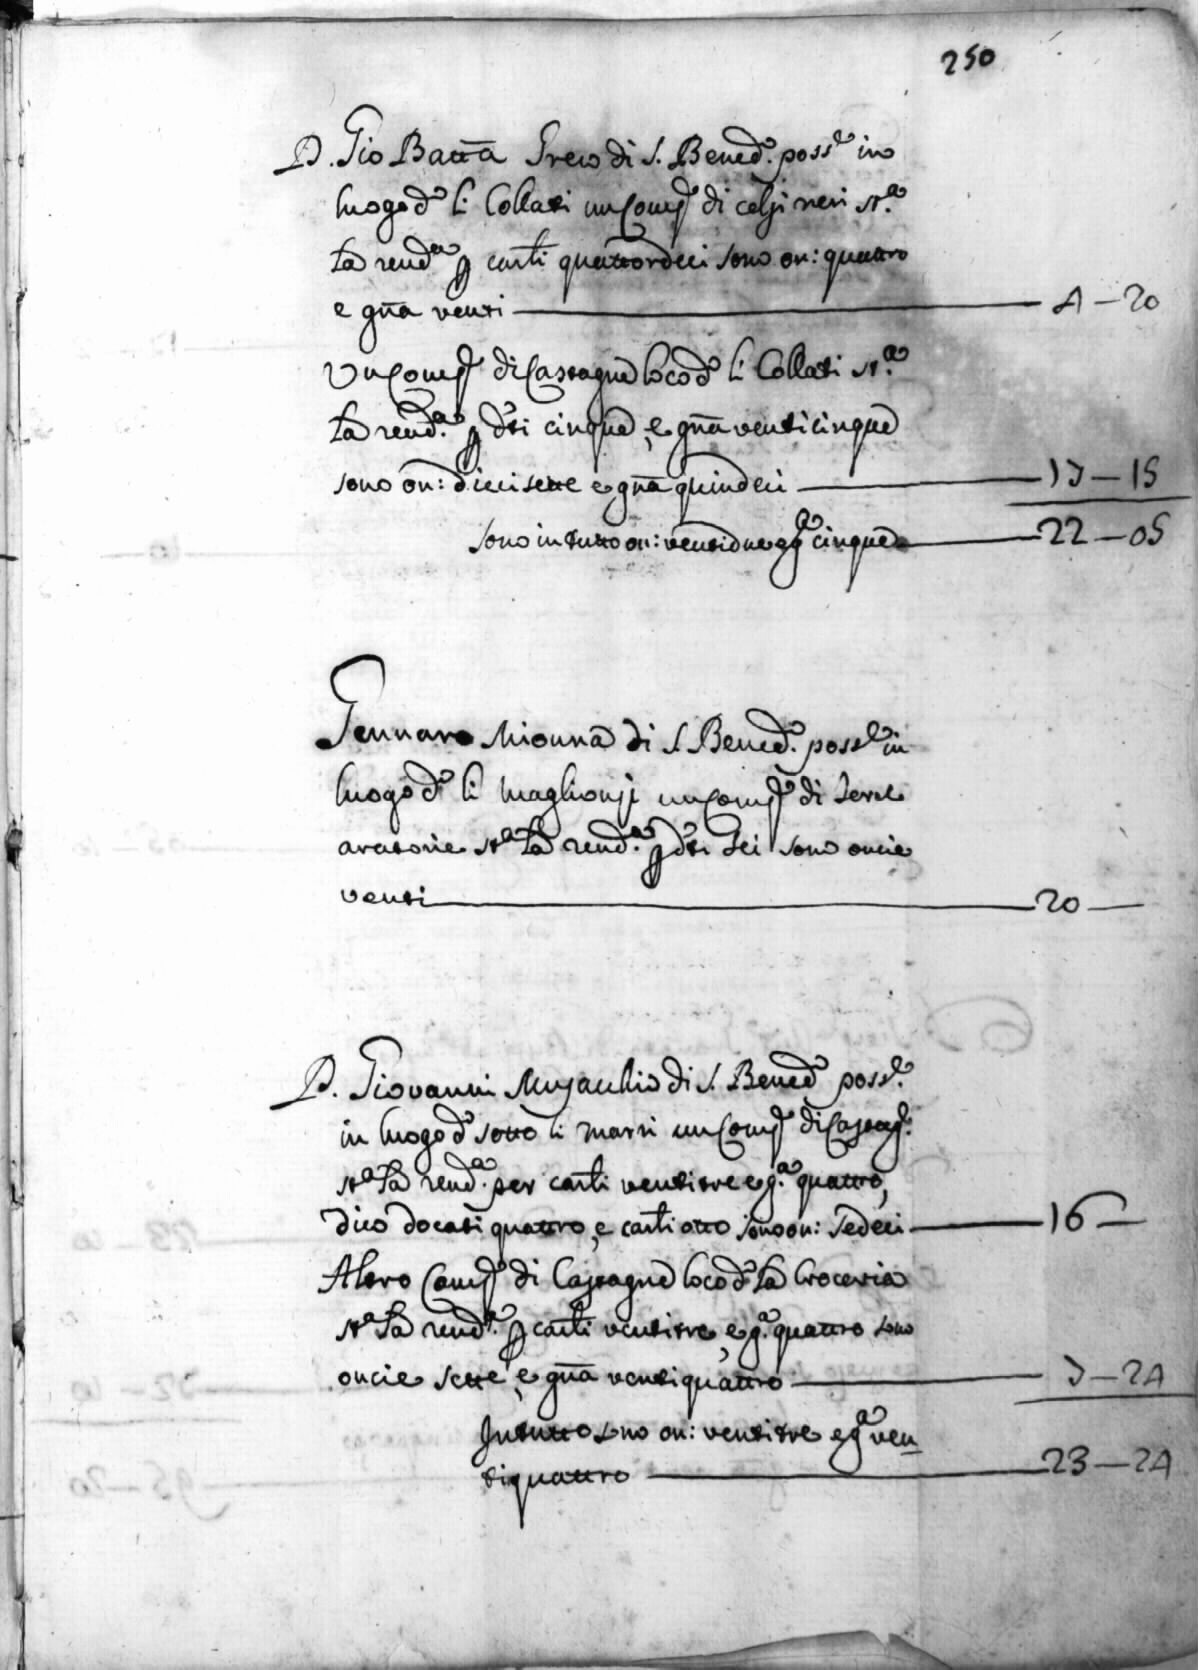 250
D. Gio Batta Greco di S. Bened.º poss.e in
luogo d.º li Collati un Comp.º di celsi neri st.a
la rend.a p carli quattordeci sono on: quattro
e gna venti — 4 – 20
Un Comp.º di Castagne loco d.º li Collati st.a
la rend.a p d.ti cinque, e gna venticinque
sono on: diecisette e gna quindeci — 17 – 15
sono in tutto on: ventidue e g.a cinque — 22 – 05
Gennaro Mionna di S. Bened.º poss.e in
luogo d.º li Maglionji un Comp.º di terre
aratorie st.a la rend.a p d.ti sei sono oncie
venti — 20 —
D. Giovanni Musacchio di S. Bened.º poss.e
in luogo d.º sotto li marri un Comp.º di Castag.e
st.a la rend.a per carli ventitre e g.a quattro,
dico docati quattro, e carli otto sono on: sedeci — 16 —
Altro Comp.º di Castagne loco d.º la Croceria
st.a la rend.a p carli ventitre, e g.a quattro sono
oncie sette, e gna ventiquattro — 7 – 24
In tutto sono on: ventitre e g.a ven
tiquattro — 23 – 24